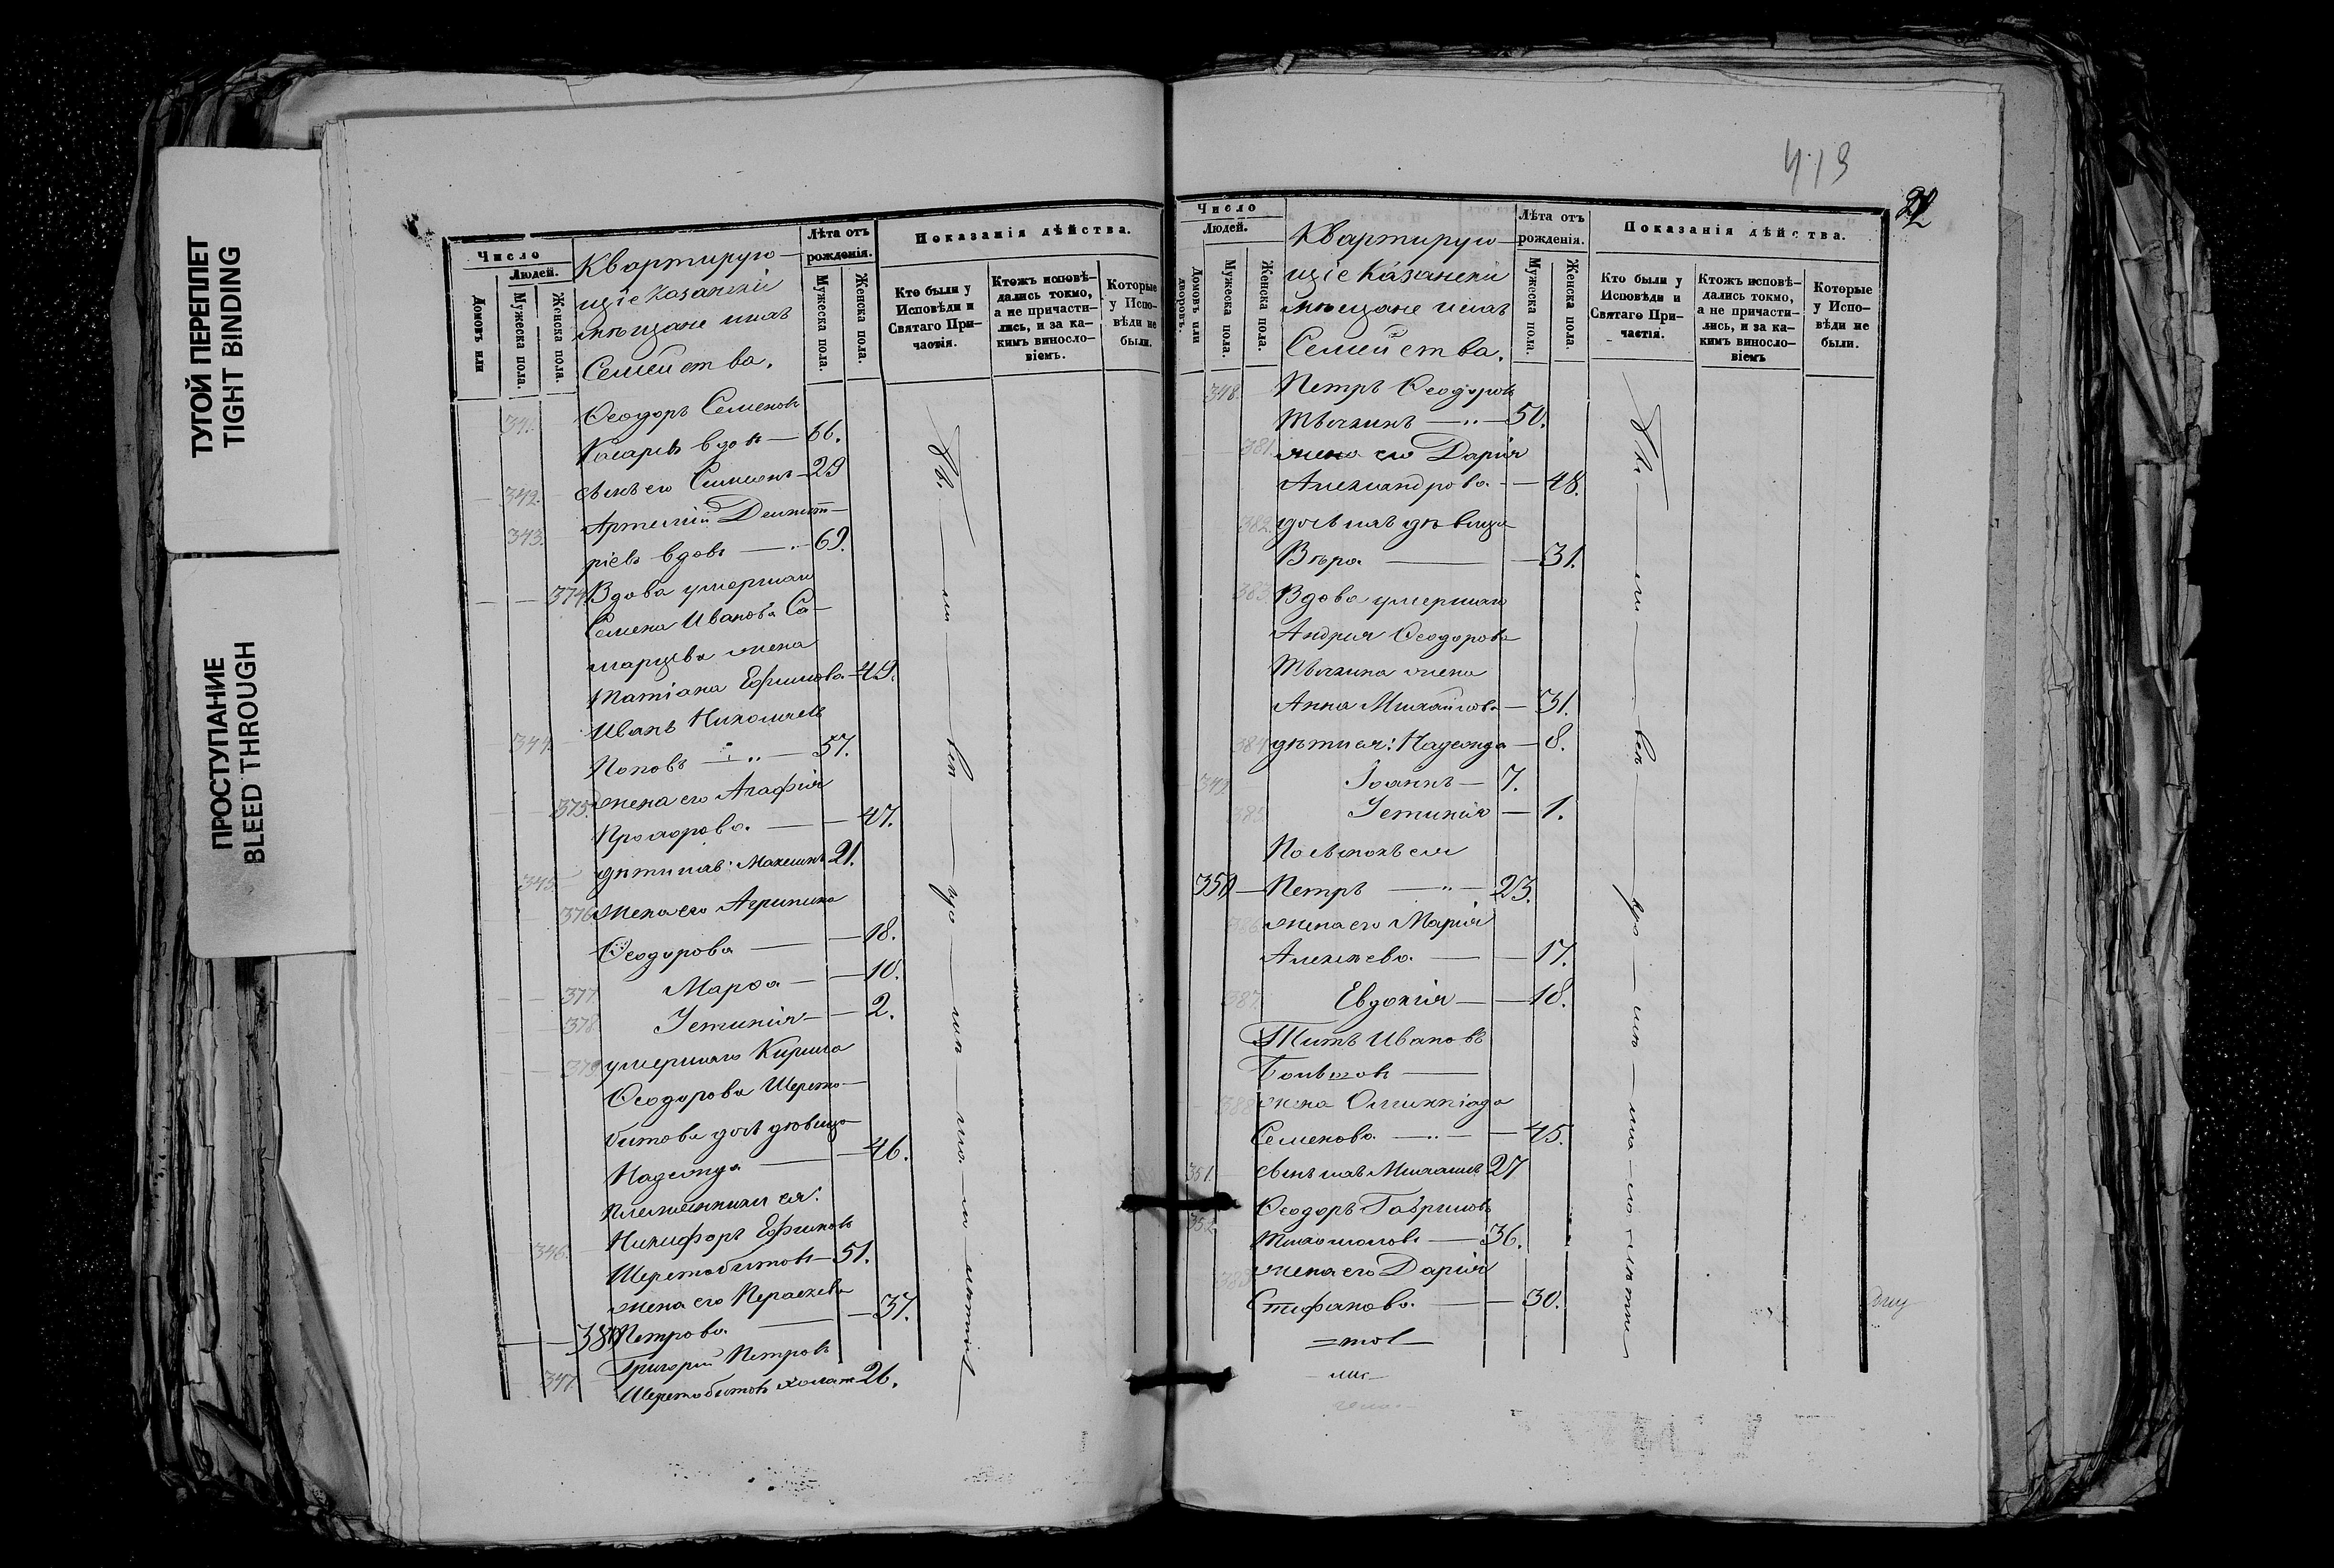 ТУГОЙ ПЕРЕПЛЕТ
TIGHT BINDING
ПРОСТУПАНИЕ
BLEED THROUGH
Число
Людей.
Домовъ или
Мужеска пола.
Женска пола.
Квартирую-
щіе Казанскіи
мѣщане и ихъ
Семейства.
Лѣта отъ
рожденія.
Мужеска пола.
Женска пола.
Показанія дѣйства.
Кто были у
Исповѣди и
Святаго При-
частія.
Ктожъ исповѣ-
дались токмо,
а не причасти-
лись, и за ка-
кимъ виносло-
віемъ.
Которые
у Испо-
вѣди не
были.
341. Ѳеодоръ Семеновъ
вдовъ — 66.
342. сынъ его Симеонъ — 29
343. Артемій Димит-
ріевъ вдовъ — 69.
374. Вдова умершаго
Семена Иванова Са-
марцева жена
Татіана Ефимова — 49.
344. Иванъ Николаевъ
Поповъ — " — 57.
375. жена его Агафія
Прохорова — 47.
345. дѣти ихъ: Максимъ 21.
376. Жена его Агрипина
Ѳеодорова — 18.
377. Марѳа — 10.
378. Устинія — 2.
379. умершаго Кирила
Ѳеодорова Шерето-
битова дочь дѣвица
Надежда — 46.
племянники ея:
346. Никифоръ Ефимовъ
Шеретобитовъ — 51.
жена его Параскева
380. Петрова — 37.
347. Григорій Петровъ
Шеретобитовъ холост 26.
413
Число
Людей.
Домовъ или
дворовъ.
Мужеска пола.
Женска пола.
Квартирую-
щіе Казанскіи
мѣщане и ихъ
Семейства.
Лѣта отъ
рожденія.
Мужеска пола.
Женска пола.
Показанія дѣйства.
Кто были у
Исповѣди и
Святаго При-
частія.
Ктожъ исповѣ-
дались токмо,
а не причасти-
лись, и за ка-
кимъ виносло-
віемъ
Которые
у Испо-
вѣди не
были.
348. Петръ Ѳеодоровъ
— " — 50.
381. жена его Дарія
Александрова — 48.
382. дочь ихъ дѣвица
Вѣра — 31.
383. Вдова умершаго
Андрея Ѳеодорова
жена
Анна Михайлова — 31.
384. дѣти ея: Надежда — 8.
349. Іоаннъ — 7.
385. Устинія — 1.
ея
350 — Петръ — " — 23.
386. жена его Марія
Алексѣева — 17.
387. Евдокія — 18.
Титъ Ивановъ
388. жена Олимпіада
Семенова — " — 45.
351. сынъ ихъ Михаилъ 27
352. Ѳеодоръ Гавриловъ
— 36.
389. жена его Дарія
Стефанова — 30.